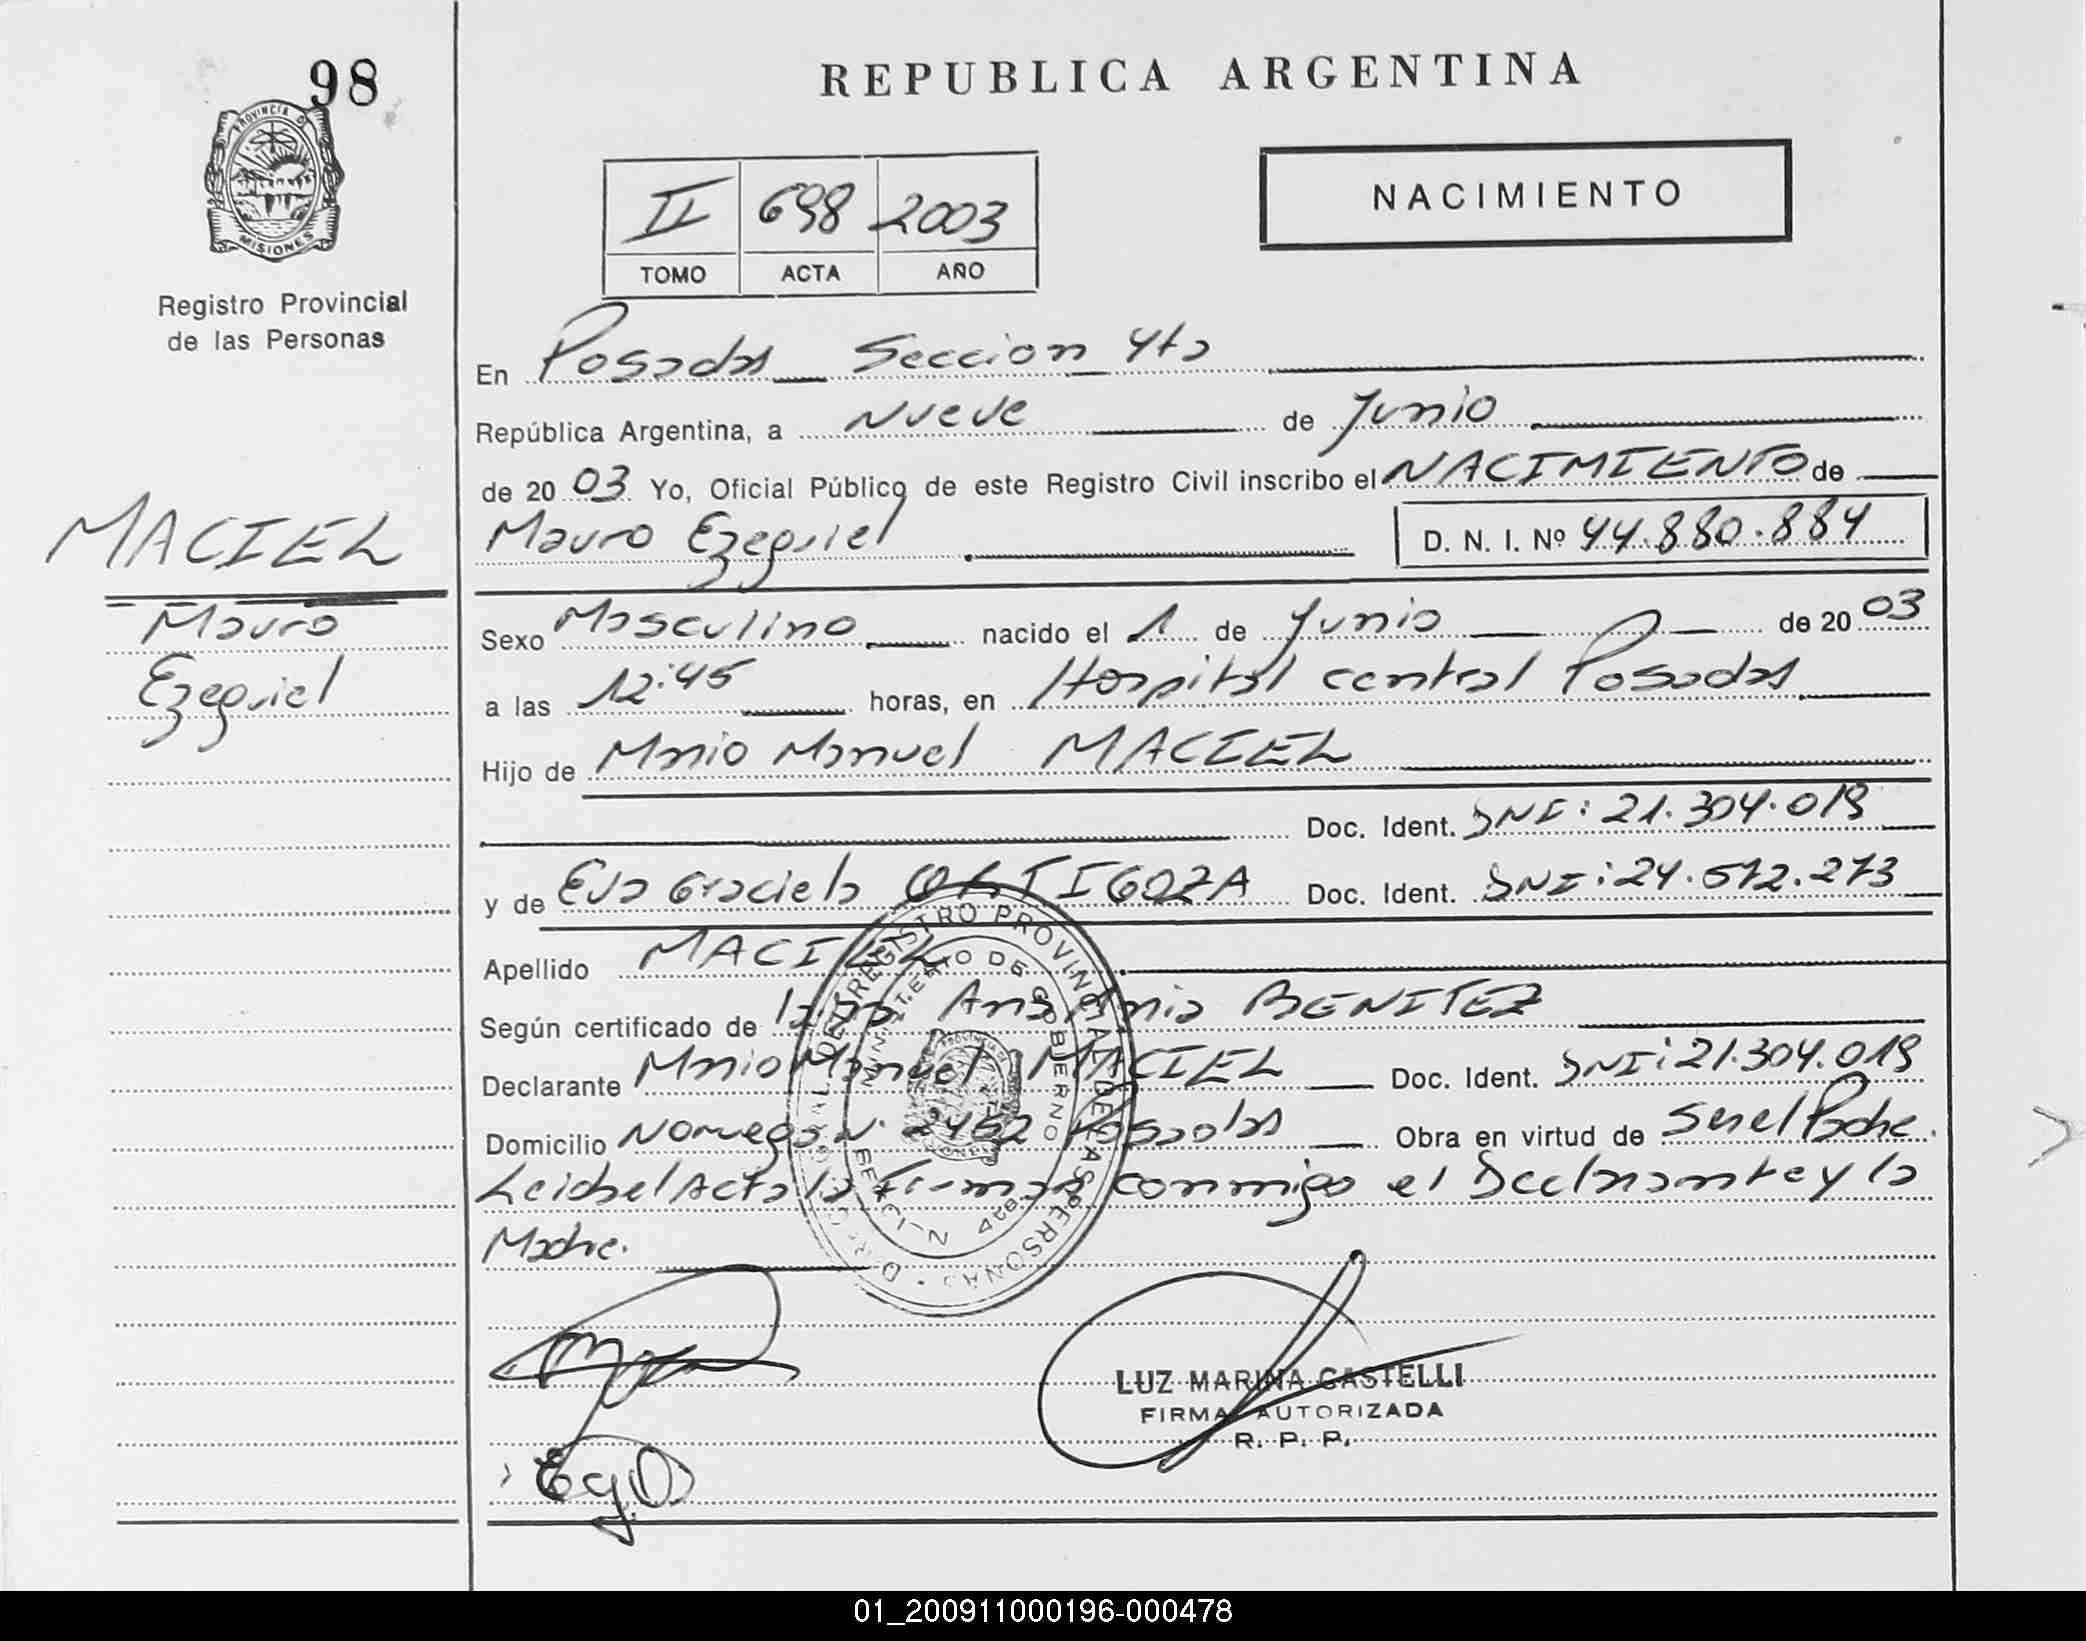 98
PROVINCIA D
MISIONES
Registro Provincial
de las Personas
REPUBLICA ARGENTINA
NACIMIENTO
II 698 2003
TOMO ACTA AÑO
En Posadas Seccion 4ta
República Argentina, a Nueve de Junio
de 20 03 Yo, Oficial Público de este Registro Civil inscribo el NACIMIENTO de
Mauro Ezequiel D. N. I. Nº 44.880.884
MACIEL
Mauro
Ezequiel
Sexo Masculino nacido el 1 de Junio de 20 03
a las 12:45 horas, en Hospital central Posadas
Hijo de Mario Manuel MACIEL
Doc. Ident. DNI: 21.304.019
y de Eva Graciela ORTIGOZA Doc. Ident. DNI: 24.572.273
Apellido MACIEL
Según certificado de BENITEZ
Declarante Mario Manuel MACIEL Doc. Ident. DNI: 21.304.019
Domicilio N. 2462 Posadas Obra en virtud de Ser el Padre.
Leida el Acta la Firman conmigo el Declarante y la
Madre.
REGISTRO PROVINCIAL DE LAS PERSONAS
MINISTERIO DE GOBIERNO
LUZ MARINA CASTELLI
FIRMA AUTORIZADA
R. P. P.
01_200911000196-000478